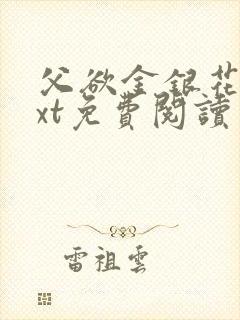 父欲金銀花
xt免費閱讀
雷祖雲